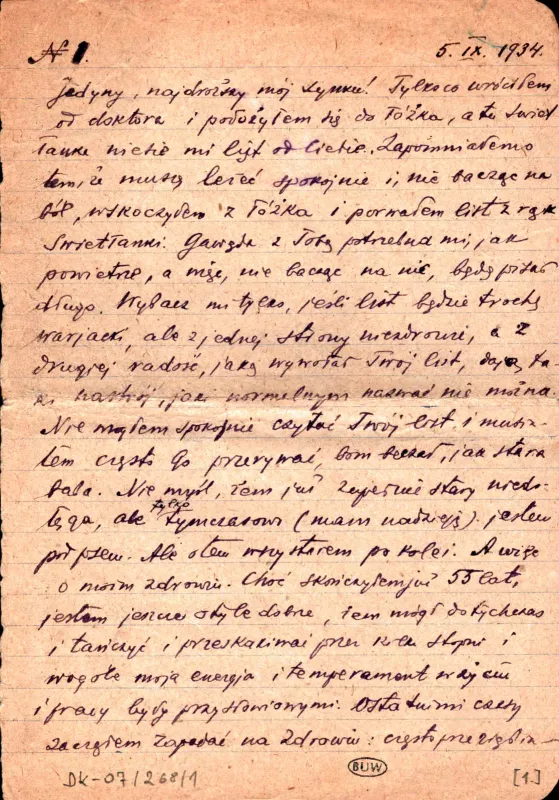 № 1. 5.IX.1934.
Jedyny, najdroższy mój synku! Tylko co wróciłem
od doktora i położyłem się do łóżka, a tu Swiet
łanka niesie mi list od Ciebie. Zapomniałem o
tem, że muszę leżeć spokojnie i, nie bacząc na
ból, wskoczyłem z łóżka i porwałem list z rąk
Swietłanki. Gawęda z Tobą potrzebna mi, jak
powietrze, a więc, nie bacząc na nic, będę pisał
długo. Wybacz mi tylko, jeśli list będzie trochę
warjacki, ale z jednej strony niezdrowie, a z
drugiej radość, jaką wywołał Twój list, dają ta
ki nastrój, jaki normalnym nazwać nie można.
Nie mogłem spokojnie czytać Twój list i musia
łem często go przerywać, bom beczał, jak stara
baba. Nie myśl, żem już zupełnie stary niedo-
łęga, ale tylko tymczasowo (mam nadzieję) jestem
pod psem. Ale o tem wszystkiem po kolei. A więc
o moim zdrowiu. Choć skończyłem już 55 lat,
jestem jeszcze o tyle dobrze, żem mógł dotychczas
i tańczyć i przeskakiwać przez kilka stopni i
wogóle moja energia i temperament w życiu
i pracy były przysłowiowymi. Ostatnimi czasy
zacząłem zapadać na zdrowiu: często przeziębia-
DK-07/268/1 BUW [1.]